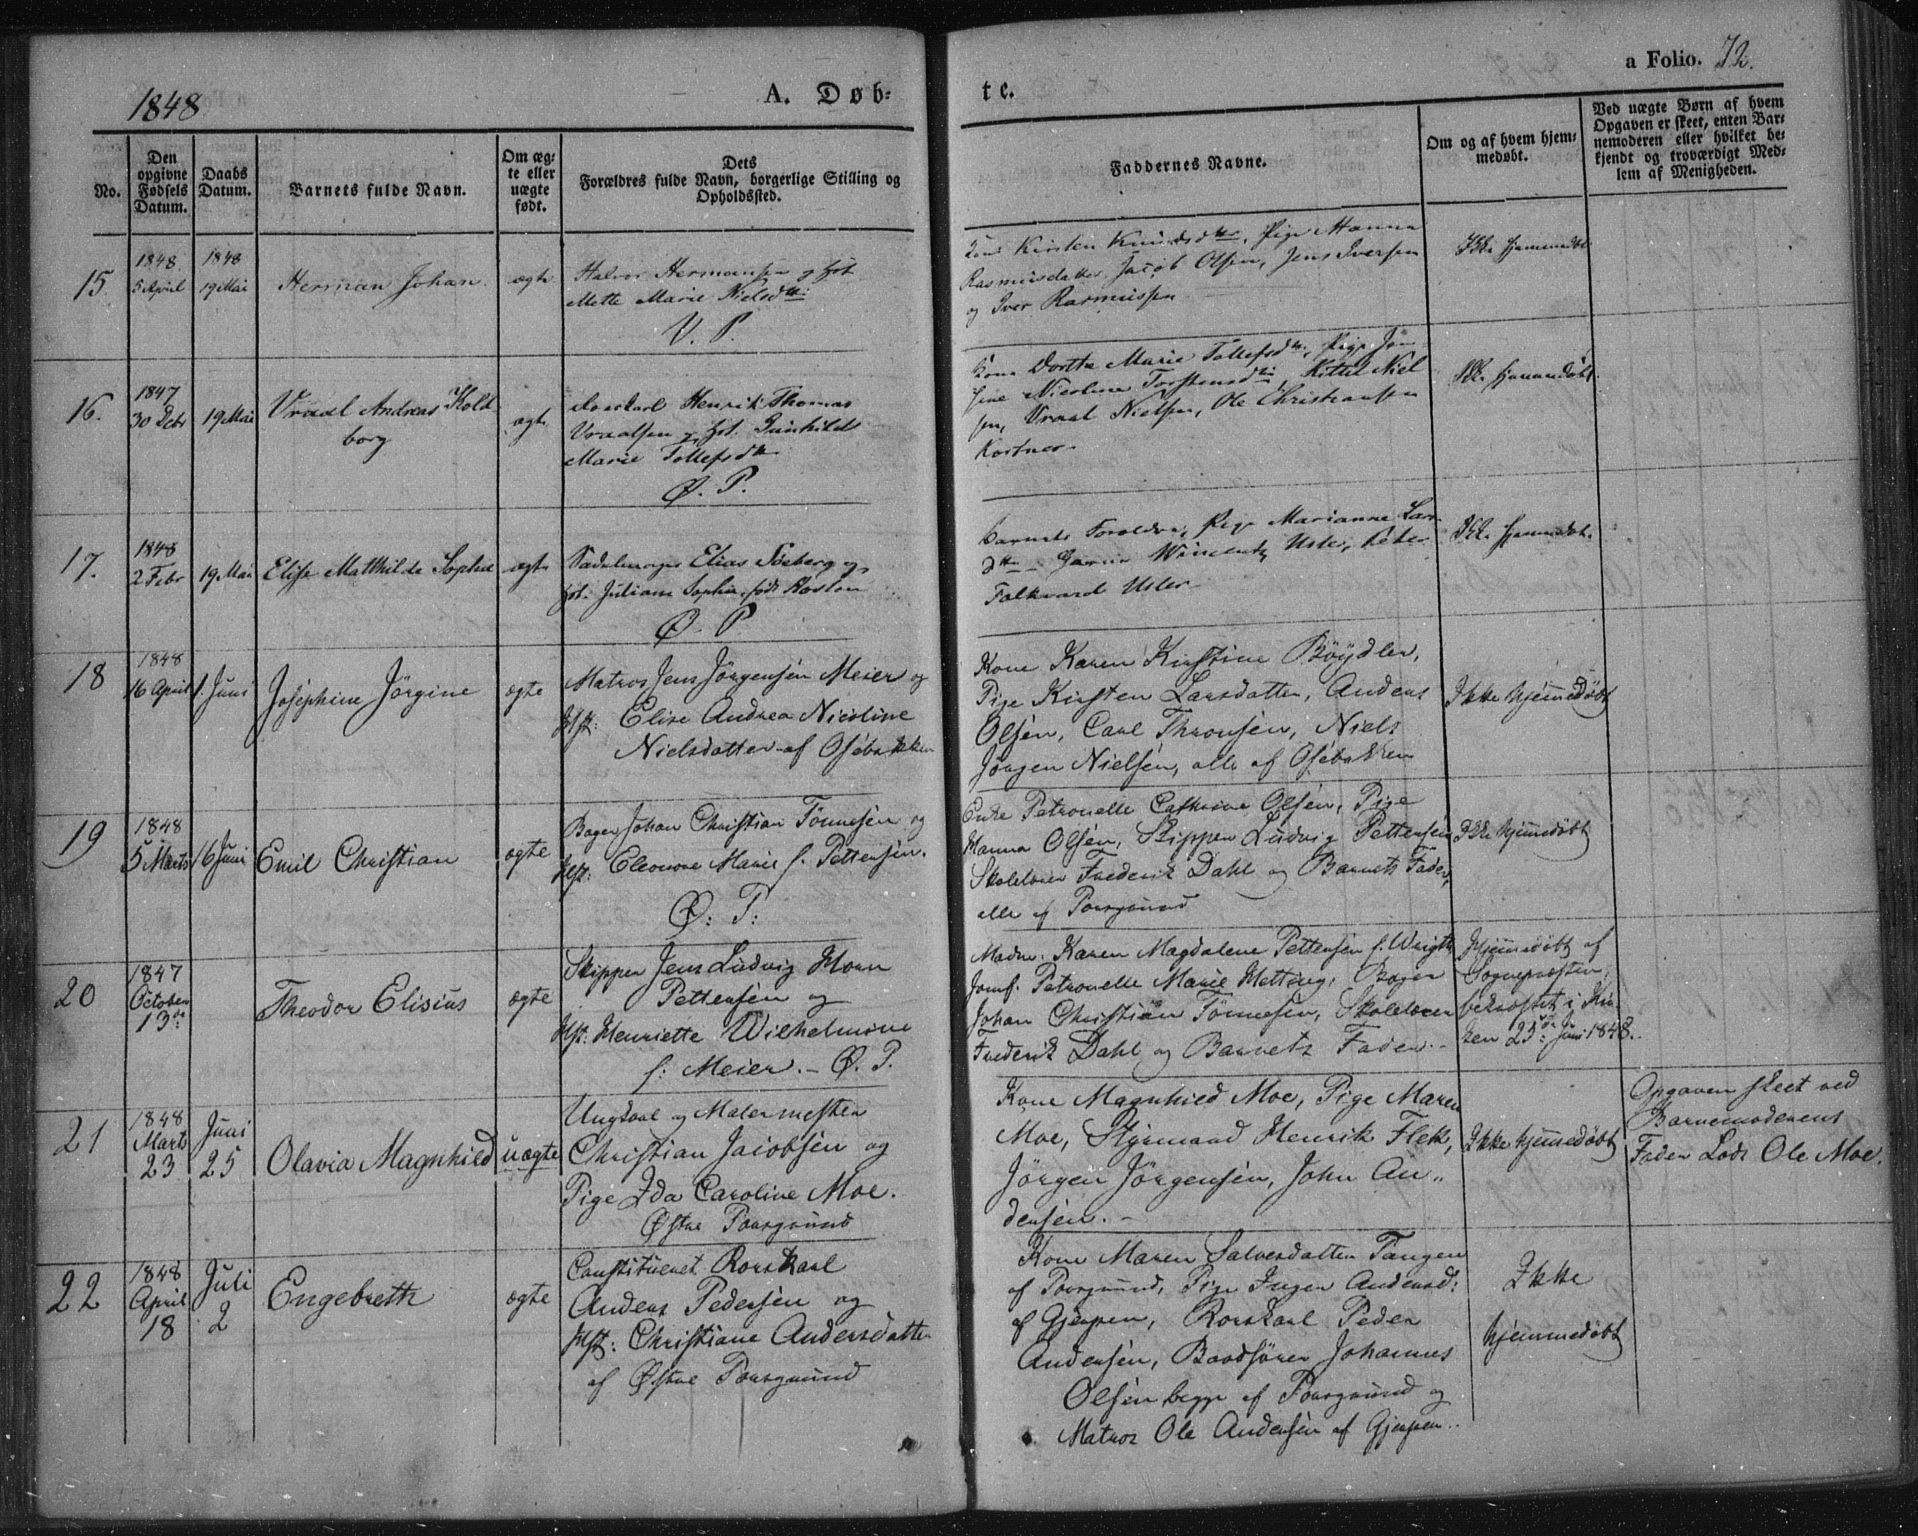 1848
A. Døb-
te.
a Folio. 72.
No.
Den opgivne Fødsels Datum.
Daabs Datum.
Barnets fulde Navn.
Om ægte eller uægte født.
Dets Forældres fulde Navn, borgerlige Stilling og Opholdssted.
Faddernes Navne.
Om og af hvem hjemmedøbt.
Ved uægte Børn af hvem Opgaven er skeet, enten Barnemoderen eller hvilket bekjendt og troværdigt Medlem af Menigheden.
15
1848
5 April
1848
19 Mai
Herman Johan
ægte
Halvor Hermansen og Hst.
Mette Marie Nielsdtr:
V. P.
Kone Kirsten Knudsdtr, Pige Hanna
Rasmusdatter, Jacob Olsen, Jens Iversen
og Iver Rasmussen
Ikke hjemmedøbt
16.
1847
30 Debr
19 Mai
Vraal Andreas Kold
borg
ægte
Henrik Thomas
Vraalsen og Hst. Gunhild
Marie Tollefsdtr
Ø. P.
Kone Dorthe Marie Tollefsdtr, Pige Jo-
sine Nicoline Torstensdtr, Kittel Niel
sen, Vraal Nielsen, Ole Christiansen
Kortner.
Ikke hjemmedøbt
17.
1848
2 Febr
19 Mai
Elise Mathilde Sophie
ægte
Sadelmager Elias Söeberg og
Hst. Juliane Sophie, født
Ø. P
Barnets Forældre, Pige Marianne Lars
dtr
Falkvard Usler
Ikke hjemmedøbt.
18
1848
16 April
1. Juni
Josephine Jörgine
ægte
Matros Jens Jörgensen Meier og
Hst: Elise Andrea Nicoline
Nielsdatter af Osebakken
Kone Karen Kirstine Böÿdler,
Pige Kirsten Larsdatter, Anders
Olsen, Carl Thronsen, Niels
Jörgen Nielsen, alle af Osebakken
Ikke hjemmedøbt
19
1848
5 Marts
16 Juni
Emil Christian
ægte
Bager Johan Christian Tönnesen og
Hst: Eleonore Marie f. Pettersen.
Ø: P:
Enke Petronelle Cathrine Olsen, Pige
Hanna Olsen, Skipper Ludvig Pettersen
Skolelærer Frederik Dahl og Barnets Fader,
alle af Porsgrund
Ikke hjemmedøbt
20
1847
October
13de
Theodor Elisius
ægte
Skipper Jens Ludvig Horn
Pettersen og
Hst: Henriette Wilhelmine
f: Meier. – Ø. P.
Madm. Karen Magdalene Pettersen f. Wrigth
Jomf. Petronelle Marie Hetting, Bager
Johan Christian Tönnesen, Skolelærer
Frederik Dahl og Barnets Fader. –
Hjemmedøbt af
Sognepræsten,
bekræftet i Kir-
ken 23de Juni 1848.
21
1848
Mart
23
Juni
25
Olavia Magnhild
uægte
Ungkarl og Malermester
Christian Jacobsen og
Pige Ida Caroline Moe.
Østre Porsgrund
Kone Magnhild Moe, Pige Maren
Moe, Styrmand Henrik Flek,
Jörgen Jörgensen, John An„
dersen. –
Ikke hjemmedøbt
Opgaven skeet ved
Barnemoderens
Fader Lods Ole Moe.
22
1848
April
18
Juli
2
Engebreth
ægte
Constitueret Rorskarl
Anders Pedersen og
Hst: Christiane Andersdatter
af Østre Porsgrund
Kone Maren Salvesdatter Tangen
af Porsgrund, Pige Inger Andersd:
af Gjerpen, Rorskarl Peder
Andersen, Baadförer Johannes
Olsen begge af Porsgrund og
Matros Ole Andersen af Gjerpen.
Ikke
hjemmedøbt